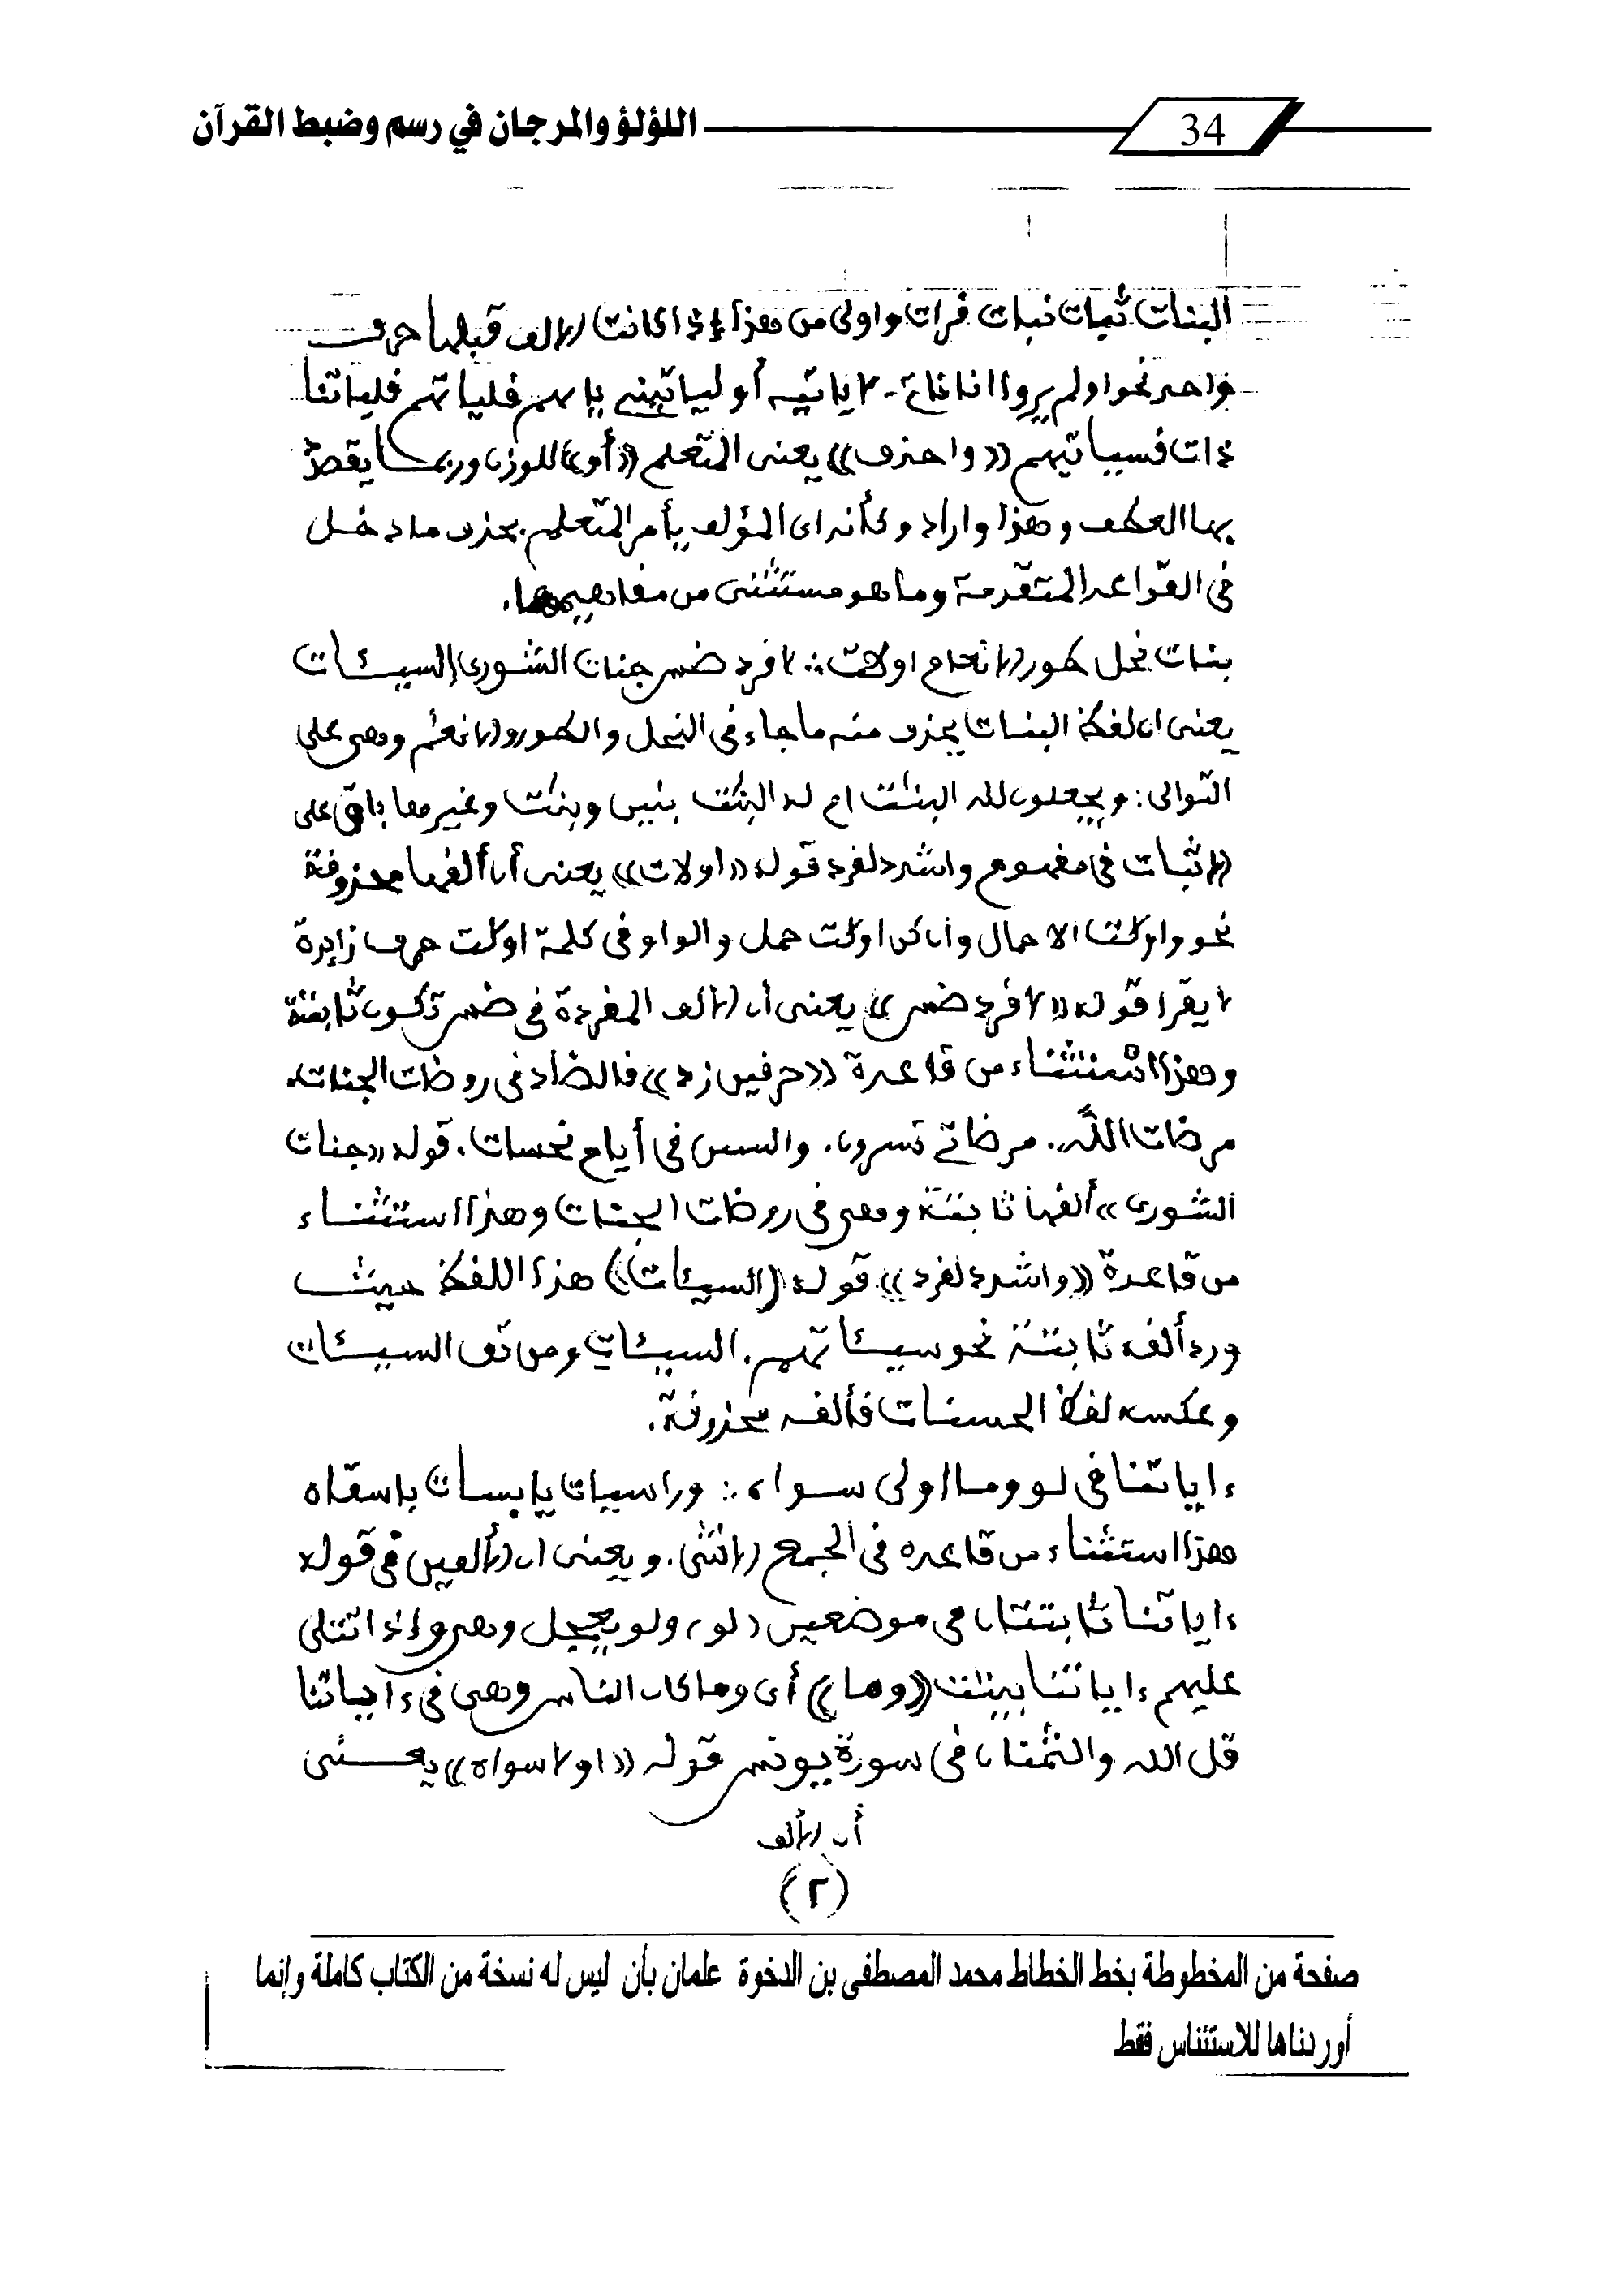 34
اللؤلؤ والمرجان في رسم وضبط القرآن
البنات ثيبات نبات فرات واولى من هذا إذا كانت الالف قبلها حرف
واحد نحو اولم يروا انا ناتى لا ياتيه أو لياتينى باسهم فلياتهم فلياتنا
ذات فسياتيهم «واحذف» يعنى المتعلم «أو» للوزن وربما يقصد
بها العطف وهذا واراد وكأنه اى المؤلف يأمر المتعلم بحذف ما دخل
فى القواعد المتقدمة وما هو مستثنى من مفاهيمها.
بنات نحل طور الانعام اولات :: لا فرد ضس جنات الشورى السيئات
يعنى ان لفظ البنات يحذف منه ما جاء فى النحل والطور والانعام وهى على
التوالى: ويجعلون لله البنت ام له البنت بنين وبنت وغيرها باق على
الاثبات فى مفهوم واشدد لفرد قوله «اولات» يعنى أن ألفها محذوفة
نحو واولت الاحمال وان كن اولت حمل والواو فى كلمة اولت حرف زايدة
لا يقرا قوله «لا فرد ضس» يعنى أن الالف المفردة فى ضس تكون ثابتة
وهذا استثناء من قاعدة «حرفين زد» فالضاد فى روضات الجنات.
مرضات الله. مرضاتى تسرون. والسين فى أيام نحسات. قوله «جنات
الشورى» ألفها ثابتة وهى فى روضات الجنات وهذا استثناء
من قاعدة «واشدد لفرد» قوله (السيئات) هذا اللفظ حيث
ورد ألفه ثابتة نحو سيئاتهم. السيئات ومن تق السيئات
وعكسه لفظ الحسنات فألفه محذوفة.
ءاياتنا فى لو وما اولى سواه :: وراسيات يابسات باسقاه
هذا استثناء من قاعده فى الجمع الانثى. ويعنى ان الألفين فى قوله
ءاياتنا ثابتتان فى موضعين (لو) ولو يعجل وهى وإذا تتلى
عليهم ءاياتنا بينت «وما» أى وما كان الناس وهى فى ءاياتنا
قل الله والثنتان فى سورة يونس قوله «اولا سواه» يعنى
أن الألف
(٢)
صفحة من المخطوطة بخط الخطاط محمد المصطفى بن الدخوة علمان بأن ليس له نسخة من الكتاب كاملة وإنما
أوردناها للاستئناس فقط